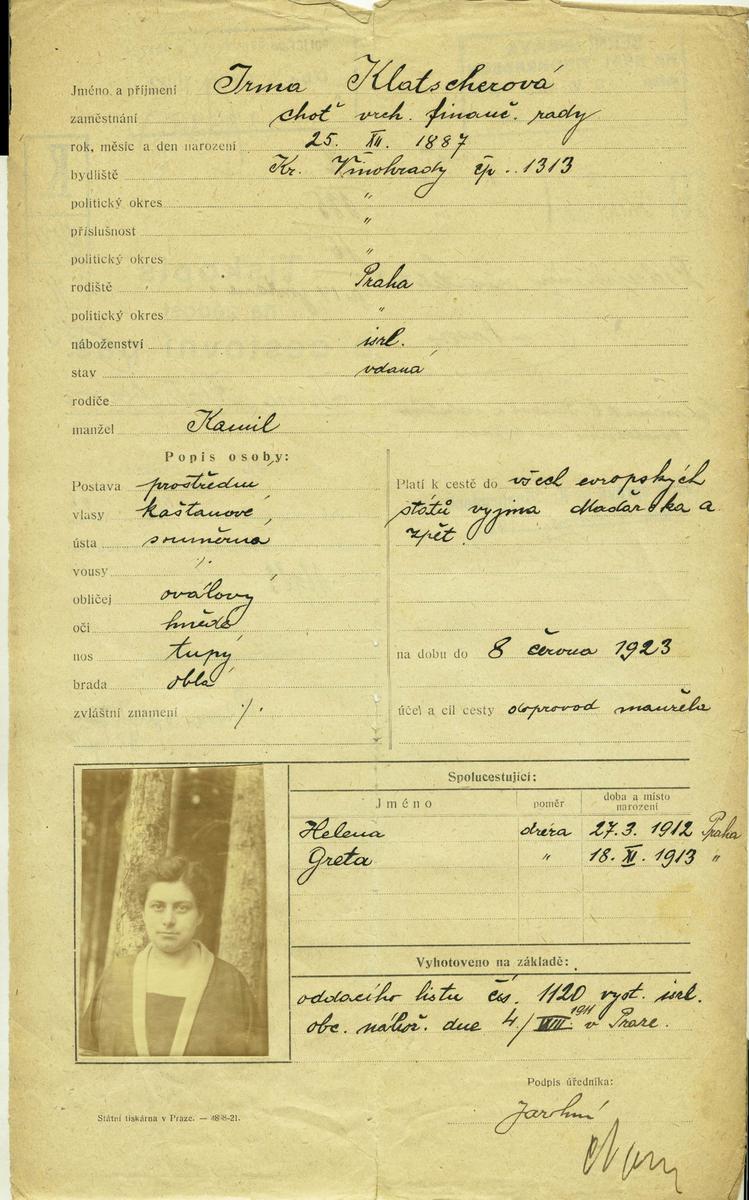 Jméno a příjmení Irma Klatscherová
zaměstnání choť vrch. finanč. rady
rok, měsíc a den narození 25. XII. 1887
bydliště Kr. Vinohrady čp. 1313
politický okres "
příslušnost "
politický okres "
rodiště Praha
politický okres "
náboženství isrl.
stav vdaná
rodiče
manžel Kamil
Popis osoby:
Postava prostřední
vlasy kaštanové
ústa souměrná
vousy ·/.
obličej oválový
oči hnědé
nos tupý
brada oblá
zvláštní znamení ·/.
Platí k cestě do všech evropských
států vyjma Maďarska a
zpět.
na dobu do 8 června 1923
účel a cíl cesty doprovod manžela
Spolucestující:
Jméno poměr doba a místo narození
Helena dcera 27.3. 1912 Praha
Greta " 18. XI. 1913 "
Vyhotoveno na základě:
oddacího listu čís. 1120 vyst. isrl.
obc. nábož. dne 4/VIII. 1911 v Praze.
Podpis úředníka:
Státní tiskárna v Praze. —